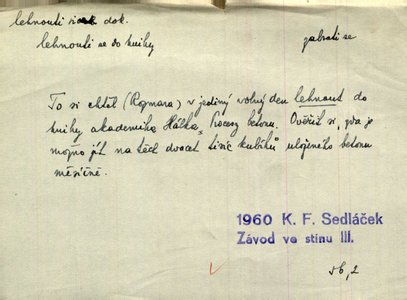 lehnouti si dok.
lehnouti se do knihy
zabrati se
To si chtěl (Rozmara) v jediný volný den lehnout do
knihy akademika Háška, Procesy betonu. Ověřit si, zda je
možno jít na těch dvacet tisíc kubíků uloženého betonu
měsíčně.
1960 K. F. Sedláček
Závod ve stínu III.
56,2